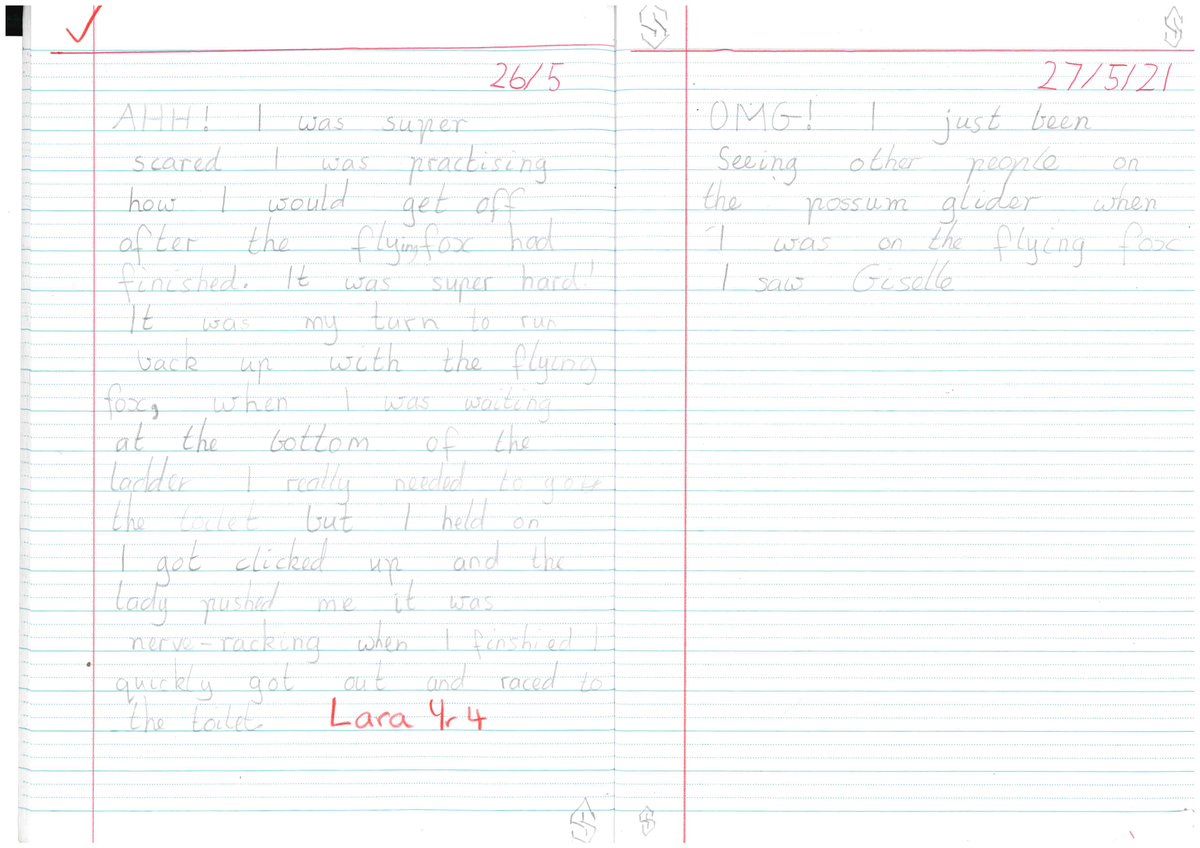 26/5
AHH! I was super
scared I was practising
how I would get off
after the flying fox had
finished. It was super hard!
It was my turn to run
back up with the flying
fox, when I was waiting
at the bottom of the
ladder I really needed to go
the toilet but I held on
I got clicked up and the
lady pushed me it was
nerve-racking when I finshied I
quickly got out and raced to
the toilet Lara Yr 4
27/5/21
OMG! I just been
Seeing other people on
the possum glider when
I was on the flying fox
I saw Giselle